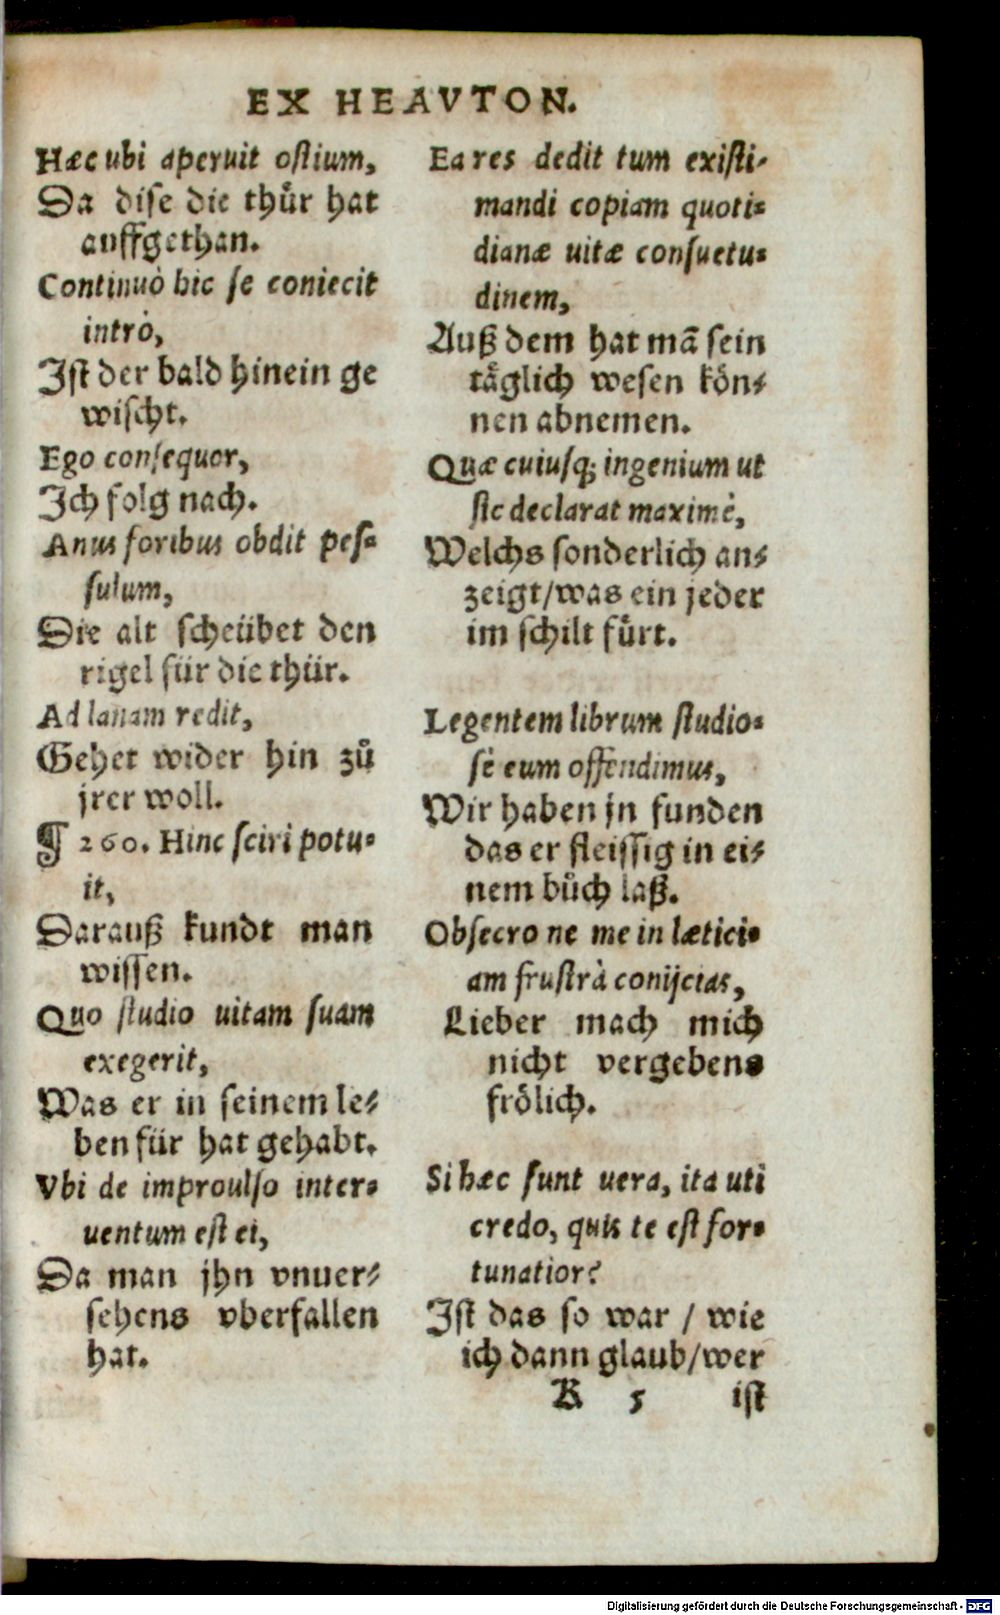 EX HEAVTON.
Hæc ubi aperuit ostium,
Da dise die thuͤr hat
auffgethan.
Continuò hic se coniecit
intrò,
Ist der bald hinein ge
wischt.
Ego consequor,
Ich folg nach.
Anus foribus obdit pes-
sulum,
Die alt scheübet den
rigel für die thür.
Ad lanam redit,
Gehet wider hin zů
jrer woll.
¶ 260. Hinc sciri potu-
it,
Darauß kundt man
wissen.
Quo studio uitam suam
exegerit,
Was er in seinem le-
ben für hat gehabt.
Vbi de improuiso inter-
uentum est ei,
Da man jhn vnuer-
sehens vberfallen
hat.
Ea res dedit tum existi-
mandi copiam quoti-
dianæ uitæ consuetu-
dinem,
Auß dem hat mã sein
taͤglich wesen koͤn-
nen abnemen.
Quæ cuiusq; ingenium ut
sic declarat maximè,
Welchs sonderlich an-
zeigt/was ein jeder
im schilt fuͤrt.
Legentem librum studio-
sè eum offendimus,
Wir haben jn funden
das er fleissig in ei-
nem bůch laß.
Obsecro ne me in lætici-
am frustrà conijcias,
Lieber mach mich
nicht vergebens
froͤlich.
Si hæc sunt uera, ita uti
credo, quis te est for-
tunatior?
Ist das so war / wie
ich dann glaub/wer
R 5 ist
Digitalisierung gefördert durch die Deutsche Forschungsgemeinschaft - DFG